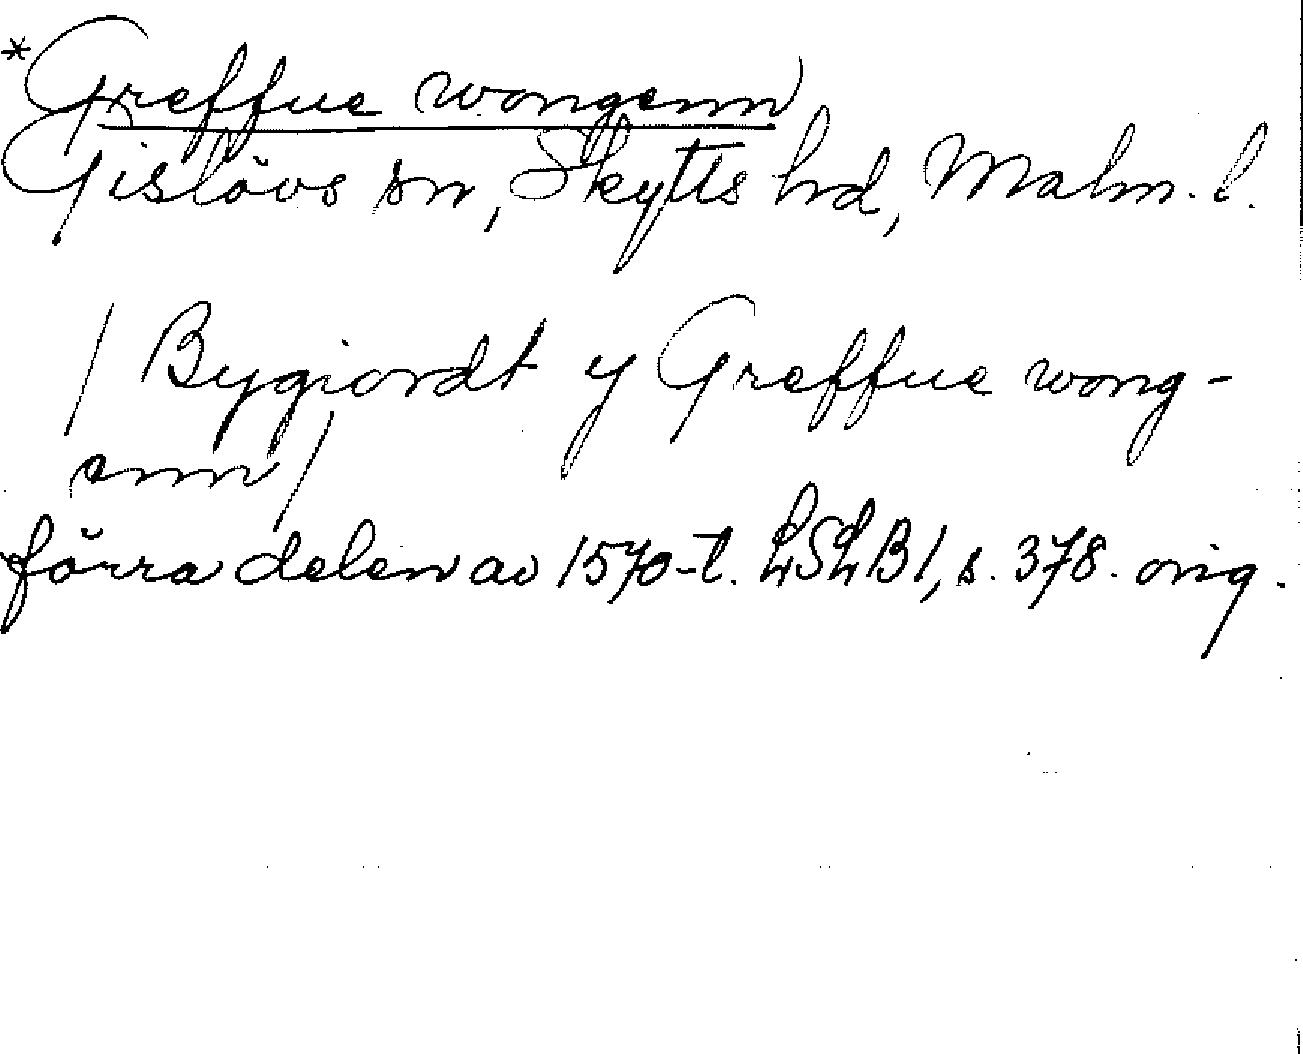 *Greffue wongenn
Gislövs sn, Skytts hd, Malm. l.
/ Bygiordt y Greffue wong-
enn /
förra delen av 1570-t. LSLB1, s. 378. orig.